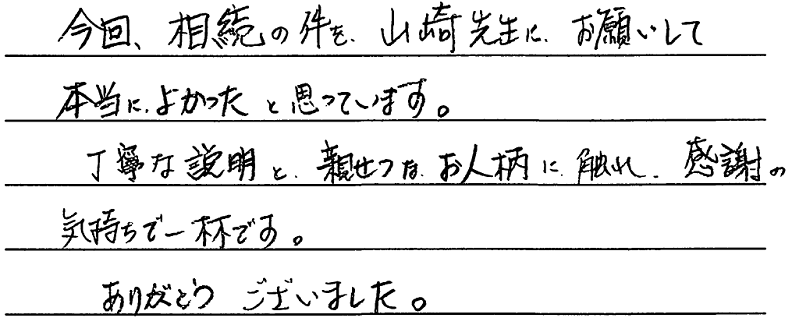 今回、相続の件を、山崎先生に、お願いして
本当に、よかったと思っています。
丁寧な説明と、親せつな、お人柄に、触れ、感謝の
気持ちで一杯です。
ありがとう ございました。